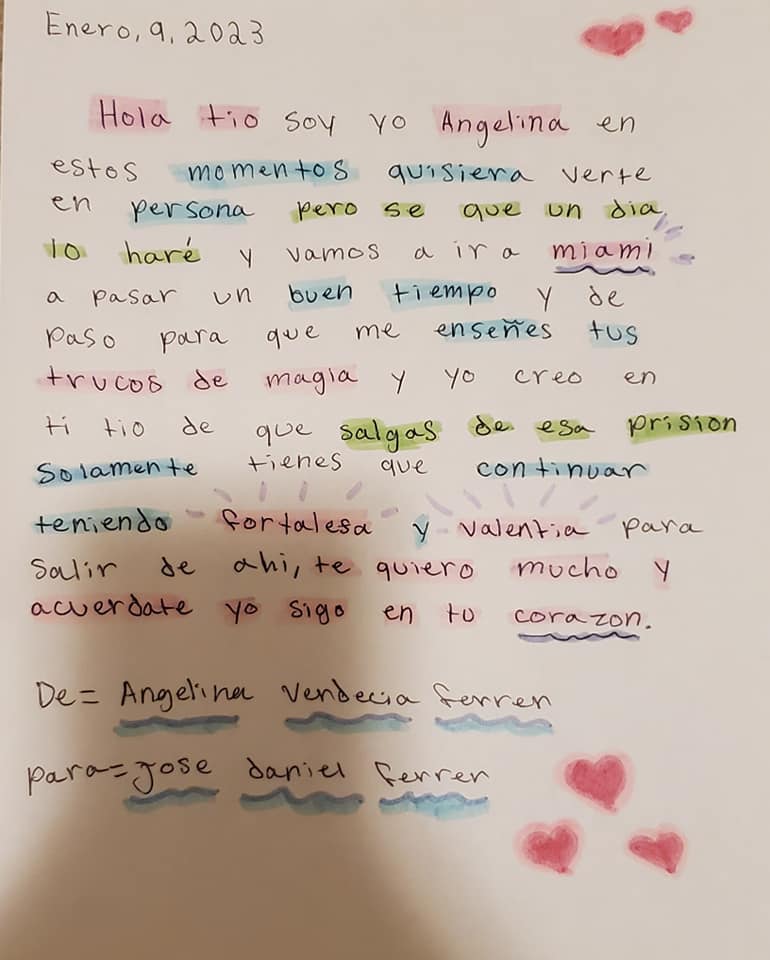 Enero, 9, 2023
Hola tio soy yo Angelina en
estos momentos quisiera verte
en persona pero se que un dia
lo haré y vamos a ir a miami
a pasar un buen tiempo y de
paso para que me enseñes tus
trucos de magia y yo creo en
ti tio de que salgas de esa prision
Solamente tienes que continuar
teniendo fortalesa y valentia para
salir de ahi, te quiero mucho y
acuerdate yo sigo en tu corazon.
De= Angelina Verdecia ferrer
para= Jose daniel ferrer